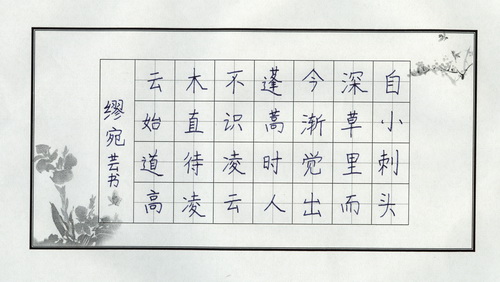 自小刺头
深草里而
今渐觉出
蓬蒿时人
不识凌云
木直待凌
云始道高
缪宛芸书